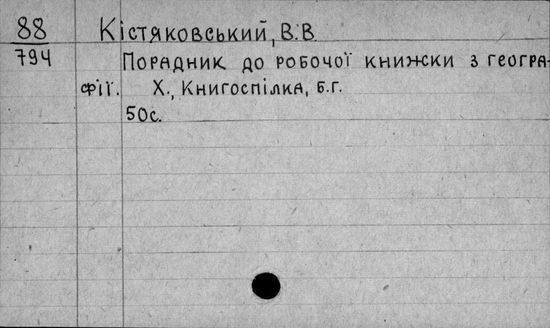 88 Кістяковський, В.В
794 Порадник до робочої книжски з геогра-
фії. Х., Книгоспілка, б.г.
50с.